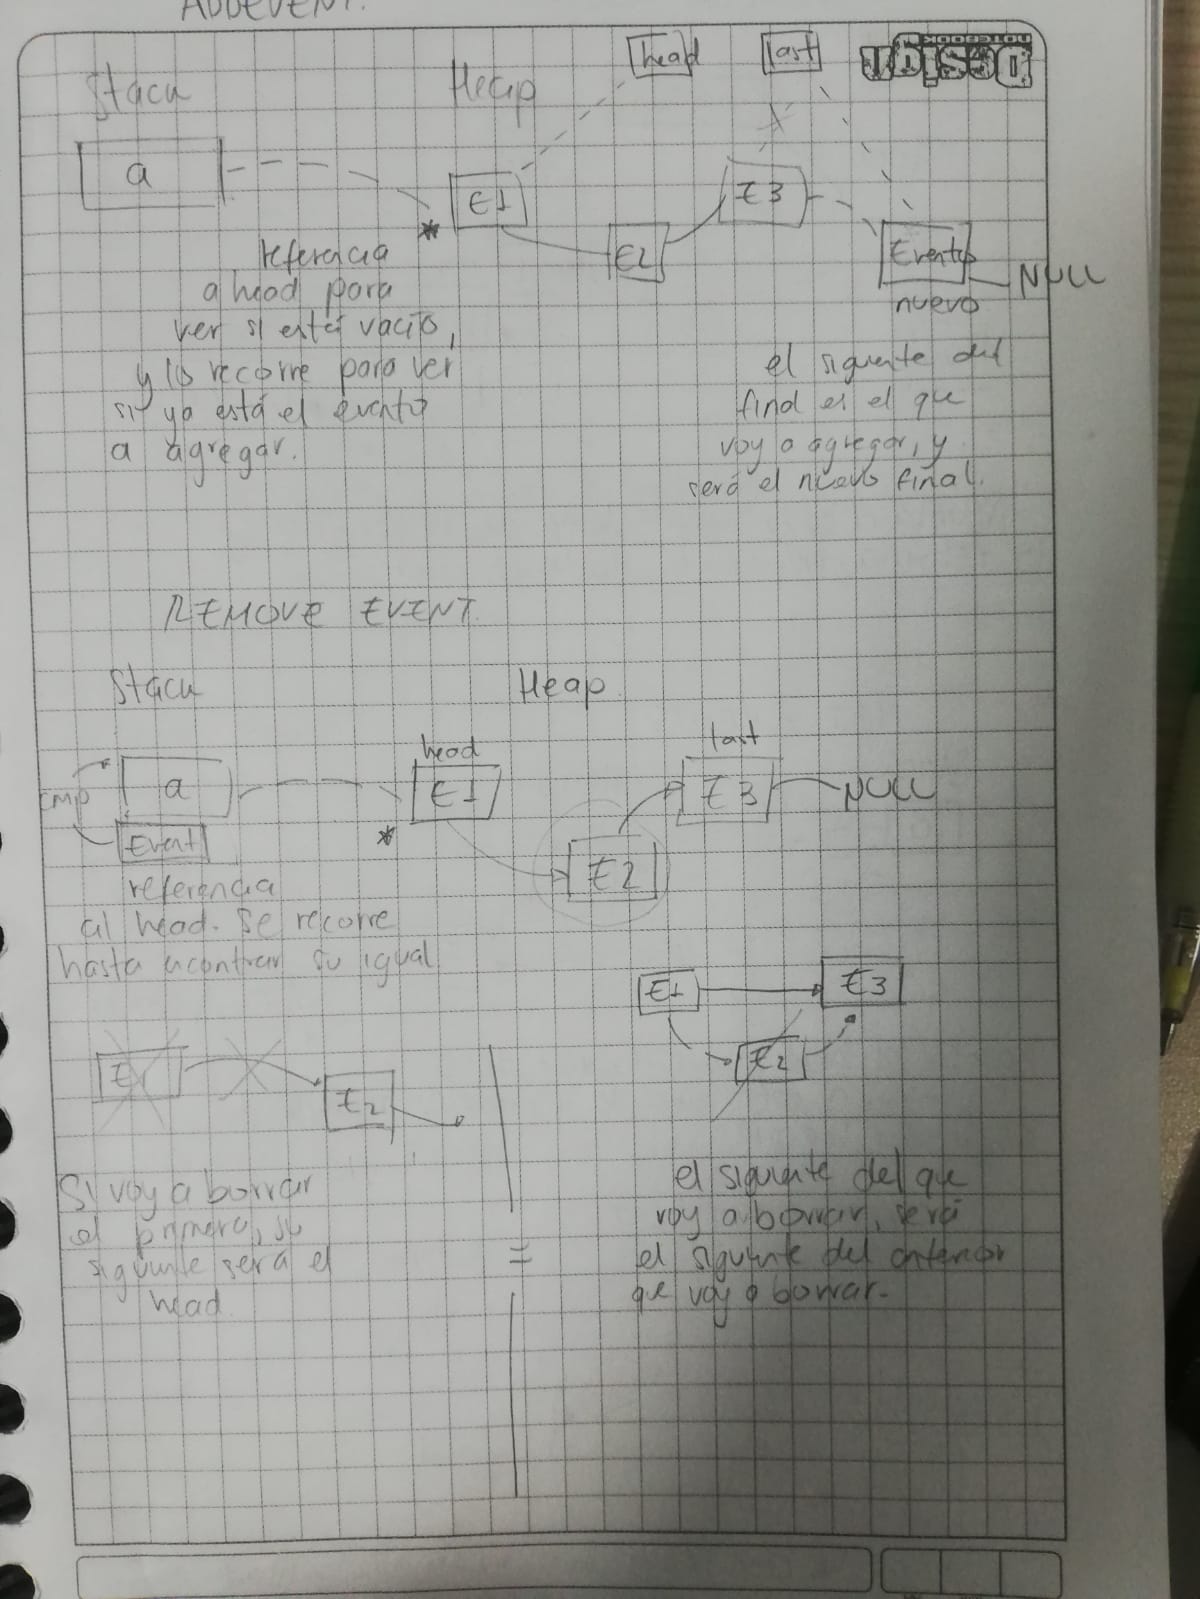 ADDEVENT.
Design
NOTEBOOK
head
last
Stack
Heap
a
E1
E2
E3
Evento
nuevo
NULL
referencia
a head para
ver si está vacío,
y lo recorre para ver
si ya está el evento
a agregar.
el siguiente del
final es el que
voy a agregar, y
será el nuevo final.
REMOVE EVENT.
Stack
Heap.
cmp
a
Event
head
E1
E2
last
E3
NULL
referencia
al head. Se recorre
hasta encontrar su igual
E1
E3
E2
E1
E2
Si voy a borrar
el primero, su
siguiente será el
head.
=
el siguiente del que
voy a borrar, será
el siguiente del anterior
que voy a borrar.